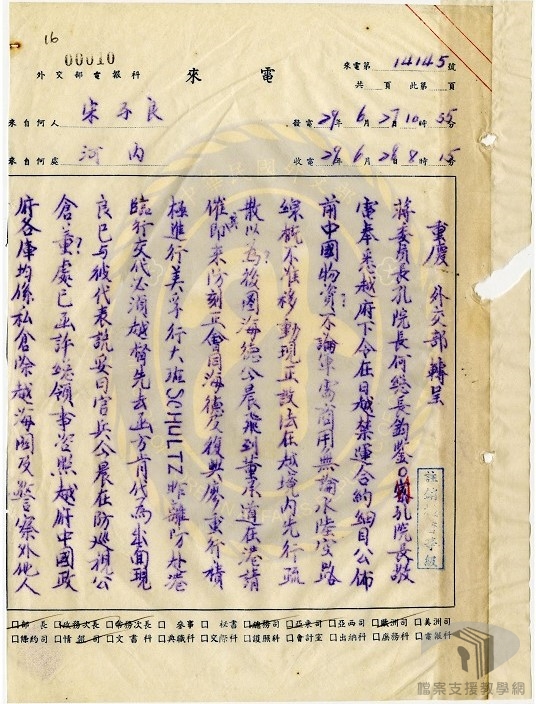 16
00010
外交部電報科
來電
來電第14145號
共 頁 此第 頁
來自何人 宋子良
發電29年6月27日10時35分
來自何處 河內
收電29年6月28日8時15分
重慶 外交部轉呈
蔣委員長孔院長何總長鈞鑒 孔院長敬
電奉悉越府下令在日越禁運合約綱目公佈
前中國物資?不論軍需商用無論水陸路
線概不准移動現正設法在越境內先行疏
散以為?後圖海德今晨飛到重承道在港請
催即來防刻正會同海德反復與廖東行積
極進行美孚行大班SCHULTZ昨離防赴港
臨行交代必須越督先去函方肯代為出面現
良已與彼代表說妥日官兵今晨在防巡視公
倉?董?處已函許總領事咨照越府中國政
府各庫均係私倉除越海關及警察外他人
部長 政務次長 常務次長 參事 秘書 總務司 亞東司 亞西司 歐洲司 美洲司
條約司 情報司 文書科 典職科 交際科 護照科 會計室 出納科 庶務科 電報科
檔案支援教學網